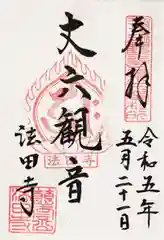 奉拝
令和五年
五月二十一日
丈六観音
法田寺